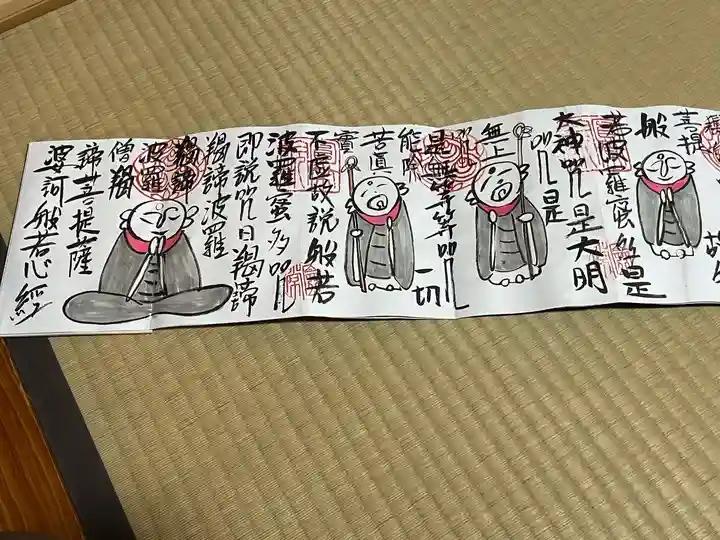 菩提
般
若波羅蜜多是
大神呪是大明
呪是
無上
呪
是無等等呪
能除
一切
苦真
實
不虚故説般若
波羅蜜多呪
即説呪曰羯諦
羯諦波羅
羯諦
波羅
僧羯
諦菩提薩
婆訶般若心経